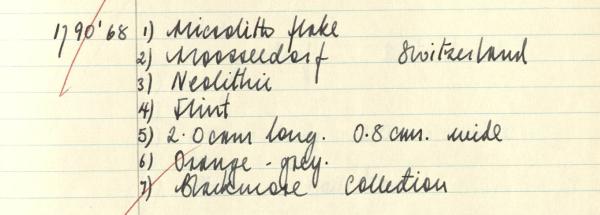 1790'68 1) Microlith flake
2) Moosseedorf Switzerland
3) Neolithic
4) Flint
5) 2.0cms long. 0.8 cms. wide
6) Orange - grey.
7) Blackmore Collection